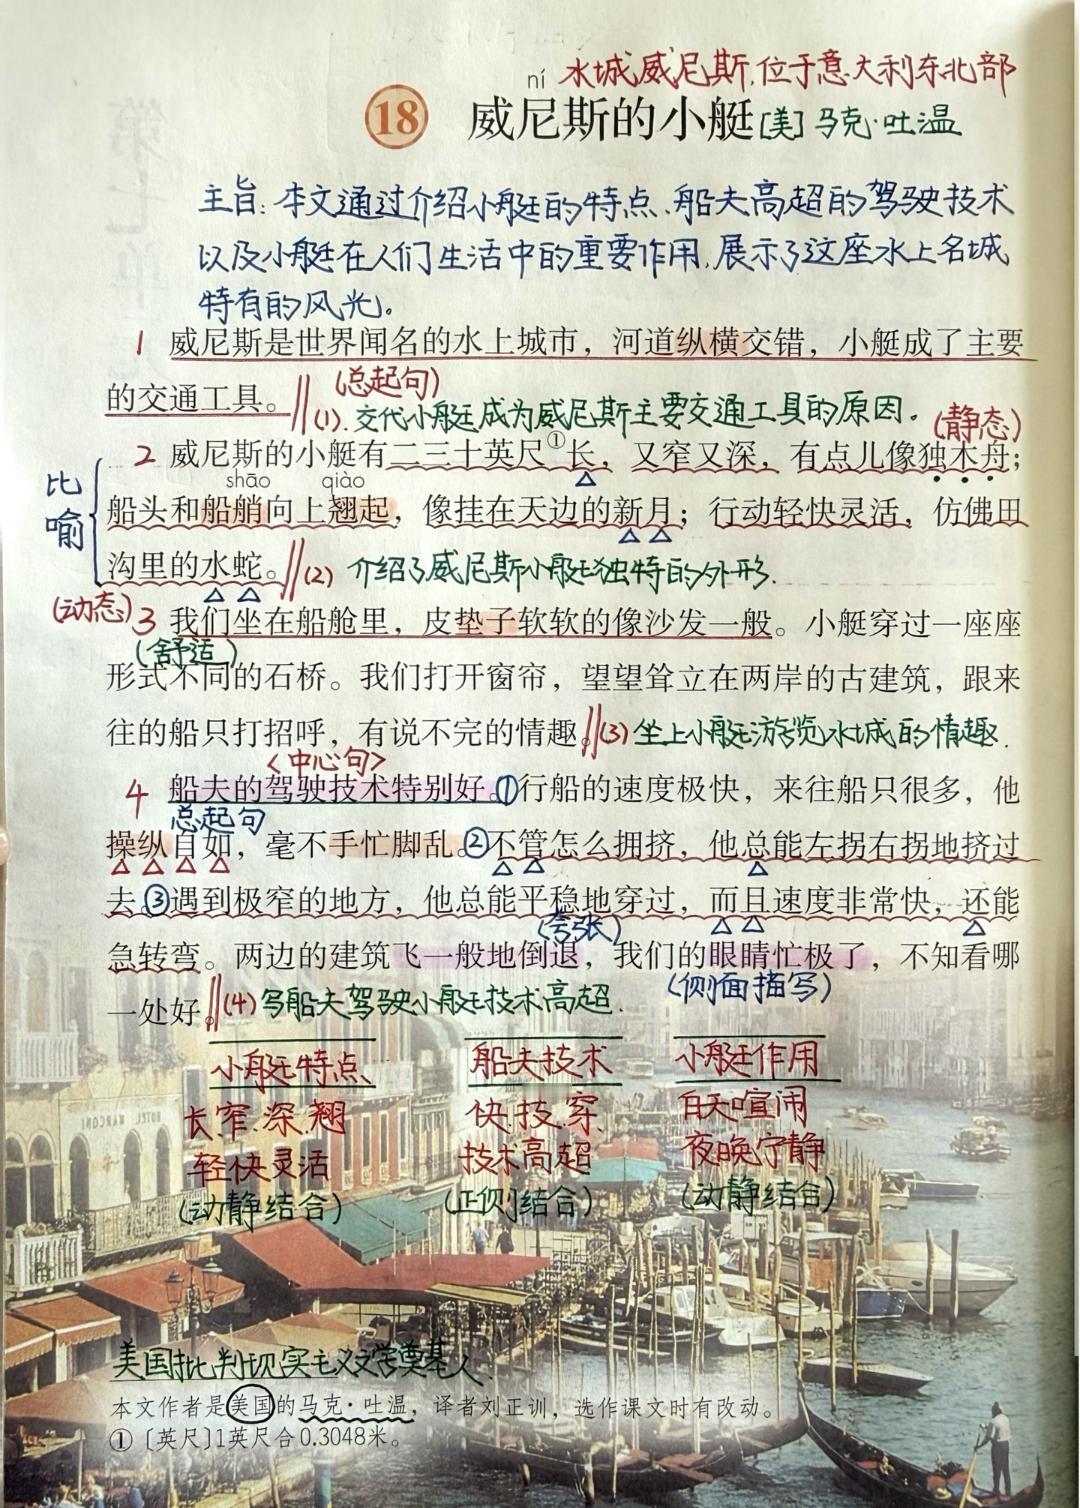 水城威尼斯,位于意大利东北部
ní
18 威尼斯的小艇 [美]马克·吐温
主旨:本文通过介绍小艇的特点、船夫高超的驾驶技术
以及小艇在人们生活中的重要作用,展示了这座水上名城
特有的风光。
1 威尼斯是世界闻名的水上城市，河道纵横交错，小艇成了主要
的交通工具。(总起句)
(1).交代小艇成为威尼斯主要交通工具的原因。(静态)
2 威尼斯的小艇有二三十英尺①长，又窄又深，有点儿像独木舟；
比喻
shāo qiào
船头和船艄向上翘起，像挂在天边的新月；行动轻快灵活，仿佛田
沟里的水蛇。(2) 介绍了威尼斯小艇独特的外形.
(动态)
3 我们坐在船舱里，皮垫子软软的像沙发一般。小艇穿过一座座
(舒适)
形式不同的石桥。我们打开窗帘，望望耸立在两岸的古建筑，跟来
往的船只打招呼，有说不完的情趣。(3) 坐上小艇游览水城的情趣.
<中心句>
4 船夫的驾驶技术特别好。①行船的速度极快，来往船只很多，他
总起句
操纵自如，毫不手忙脚乱。②不管怎么拥挤，他总能左拐右拐地挤过
去。③遇到极窄的地方，他总能平稳地穿过，而且速度非常快，还能
(夸张)
急转弯。两边的建筑飞一般地倒退，我们的眼睛忙极了，不知看哪
(侧面描写)
一处好。(4) 写船夫驾驶小艇技术高超.
小艇特点 船夫技术 小艇作用
长、窄、深、翘 快、技、穿 白天喧闹
轻快灵活 技术高超 夜晚宁静
(动静结合) (正侧结合) (动静结合)
美国批判现实主义文学奠基人.
本文作者是美国的马克·吐温，译者刘正训，选作课文时有改动。
①〔英尺〕1英尺合0.3048米。